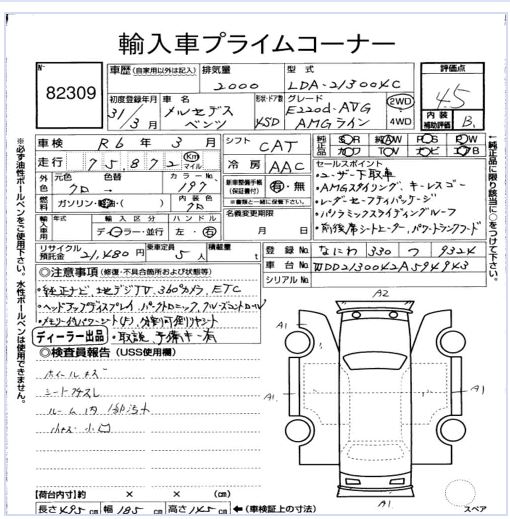 輸入車プライムコーナー
No 82309
車歴 (自家用以外は記入) 排気量 2000 型式 LDA-213004C 評価点 4.5
初度登録年月 31/3月 車名 メルセデスベンツ 形状・ドア数 4SD グレード E220d-AVG AMGライン 2WD 4WD 内装補助評価 B
車検 R6年3月 シフト CAT 純正品 SR AW PS PW
走行 75872 Km マイル 冷房 AAC カワ TV ナビ エアB
外色 元色 クロ→ 色替 カラーNo. 197 新車整備手帳(保証書付) 有・無
燃料 ガソリン・軽・( ) 内装色 クロ ※書類と一緒に保管して下さい。
輸入車用 年式 輸入区分 ディーラー・並行 ハンドル 左・右 名義変更期限 月 日
リサイクル預託金 21,480円 乗車定員 5人 積載量 t
セールスポイント
・ユーザー下取車
・AMGスタイリング、キーレスゴー
・レーダーセーフティパッケージ
・パノラミックスライディングルーフ
・前後席シートヒーター、パワートランクフード
登録No. なにわ 330 つ 9324
車台No. WDD2130042A594943
シリアルNo.
◎注意事項 (修復・不具合箇所および状態等)
・純正ナビ 地デジTV、360°カメラ、ETC
・ヘッドアップディスプレイ、パークトロニック、クルーズコントロール
・メモリー付パワーシート(F)、分割可倒リヤシート
ディーラー出品 ・取説、予備キー有
◎検査員報告 (USS使用欄)
ホイールキズ
シートスレ
ルーム内 汚れ
小キズ・小凹
A2
A1
A1
A1
A1
スペア
【荷台内寸】約 × × (cm)
長さ 495cm 幅 185cm 高さ 145cm ←(車検証上の寸法)
※必ず油性ボールペンをご使用下さい。水性ボールペンは使用できません。
←純正品に限り該当に○をつけて下さい。